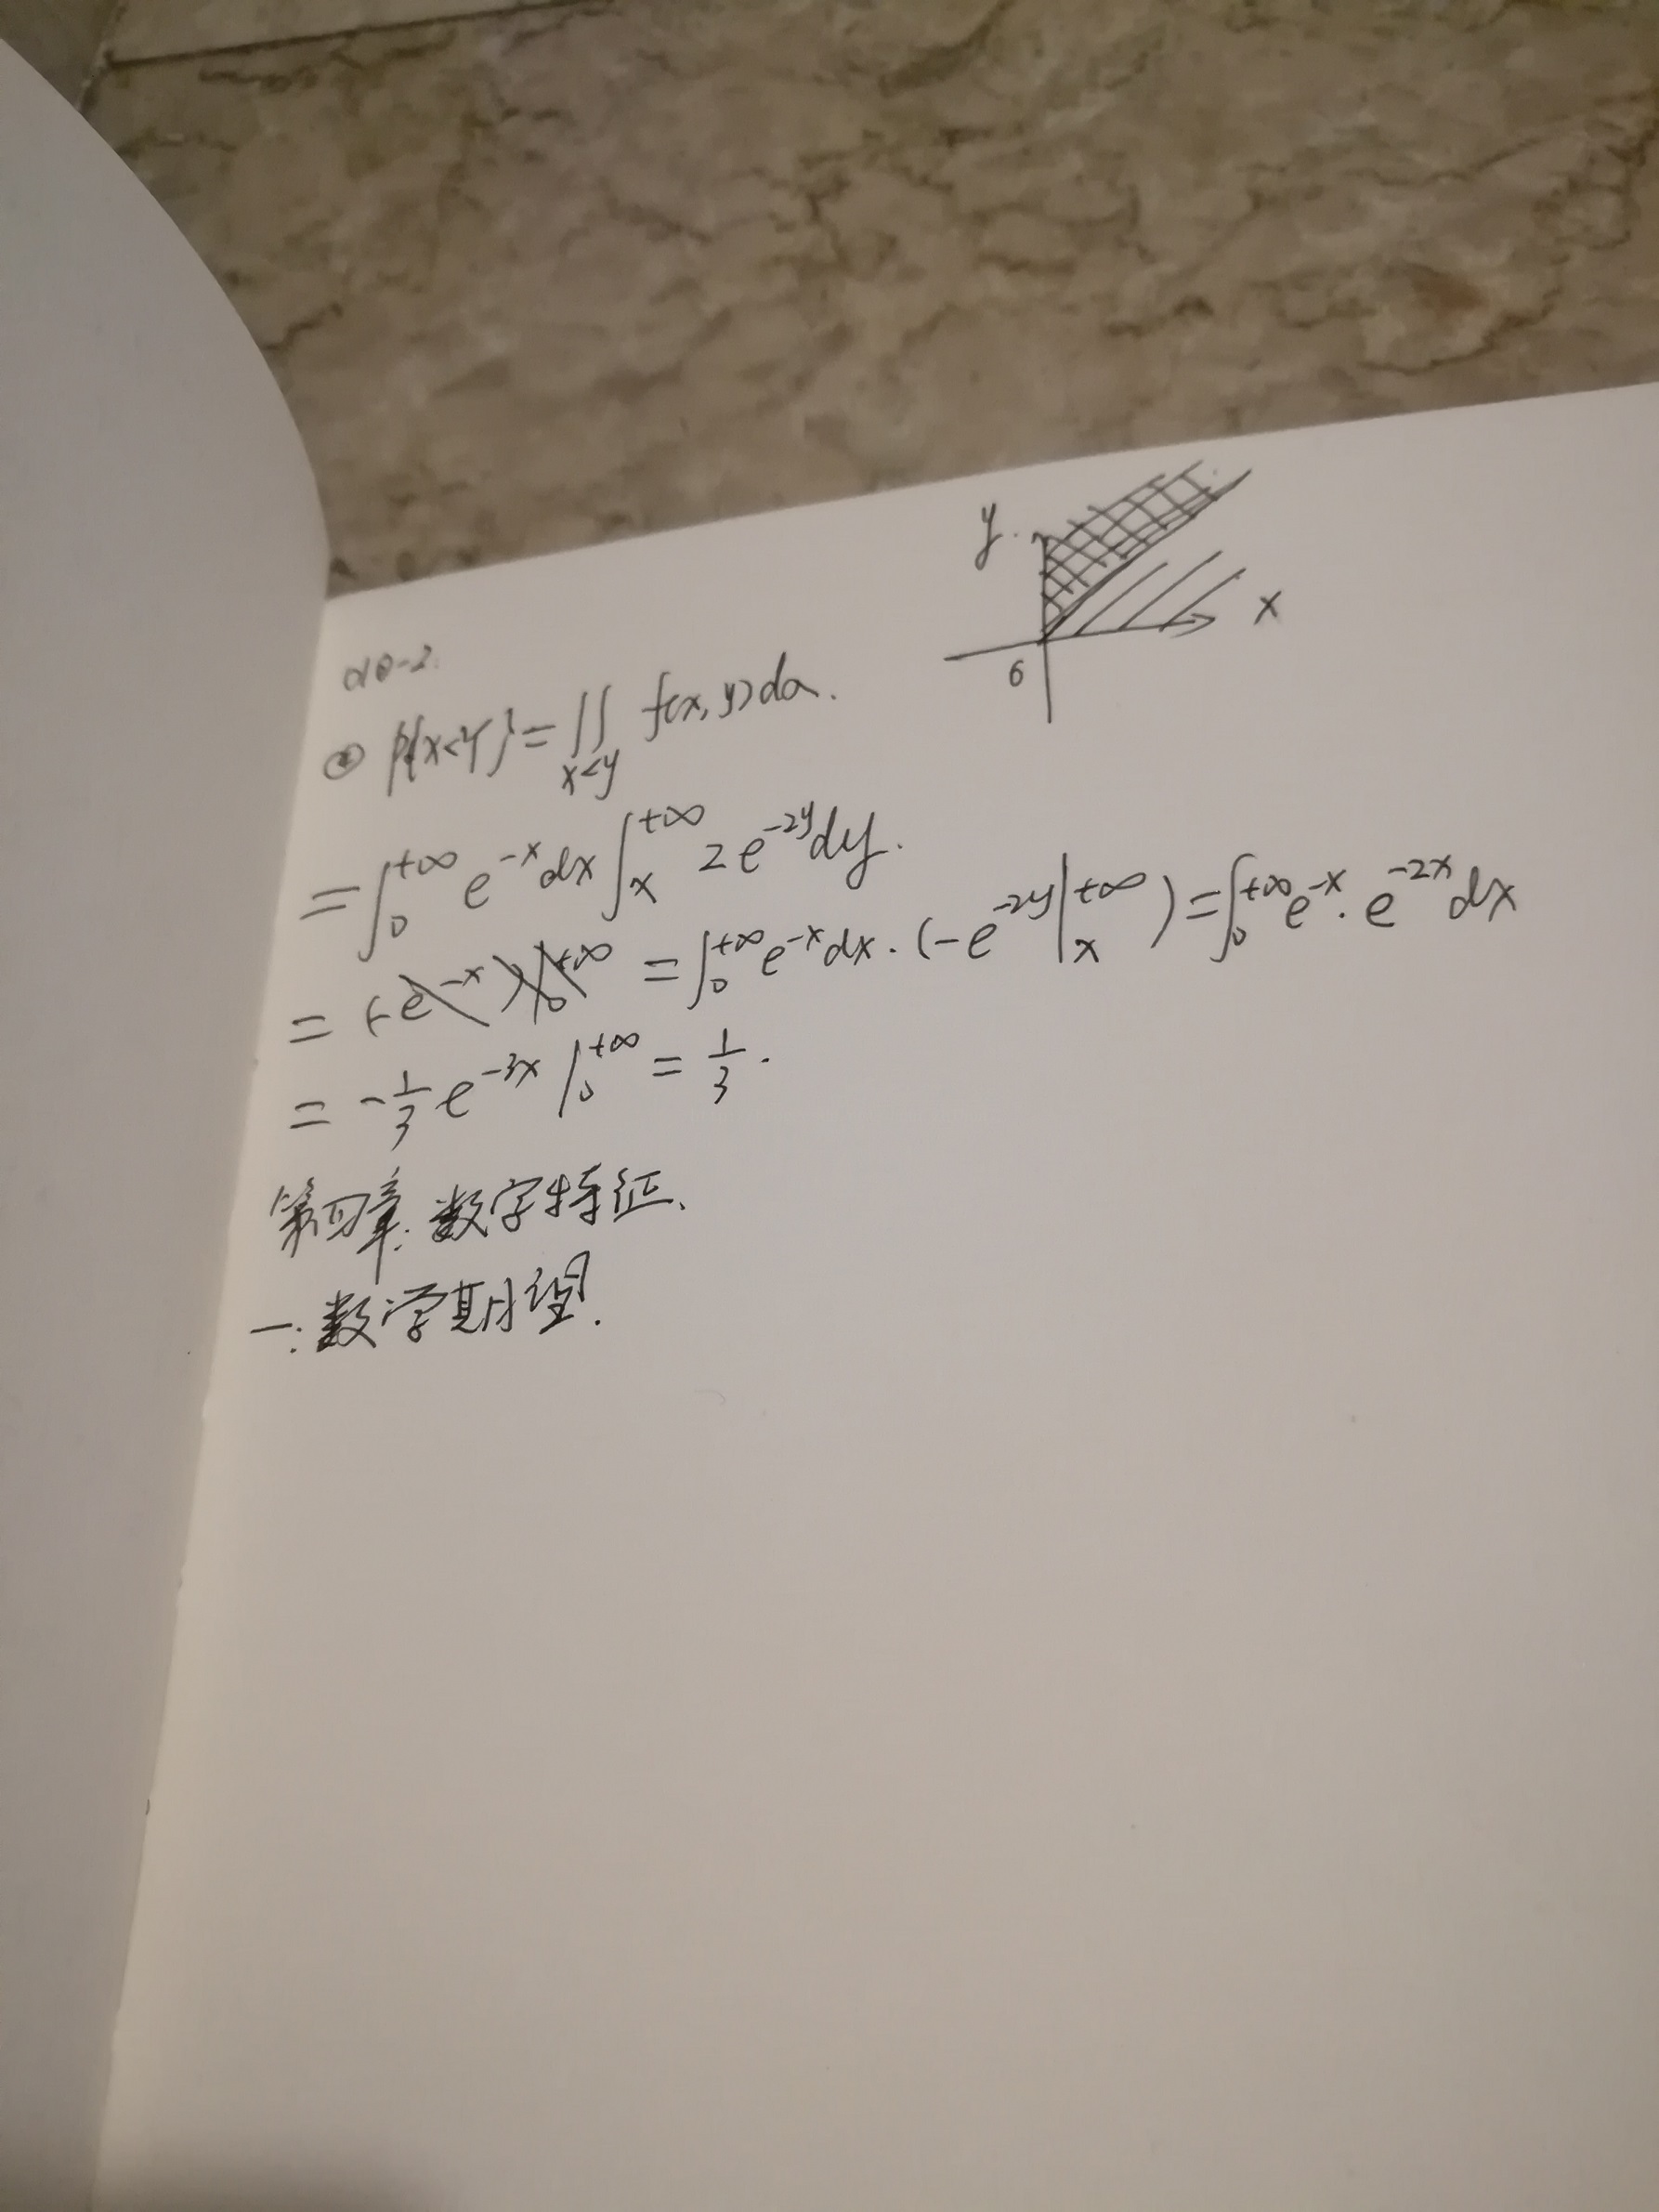 y
x
0
② P{X<Y}=∬_{x<y} f(x,y)dσ.
=∫_0^{+∞} e^{-x}dx∫_x^{+∞} 2e^{-2y}dy.
= (-e^{-x})|_0^{+∞} =∫_0^{+∞}e^{-x}dx·(-e^{-2y}|_x^{+∞})=∫_0^{+∞}e^{-x}·e^{-2x}dx
= -1/3 e^{-3x}|_0^{+∞} = 1/3.
第四章:数字特征.
一:数学期望.